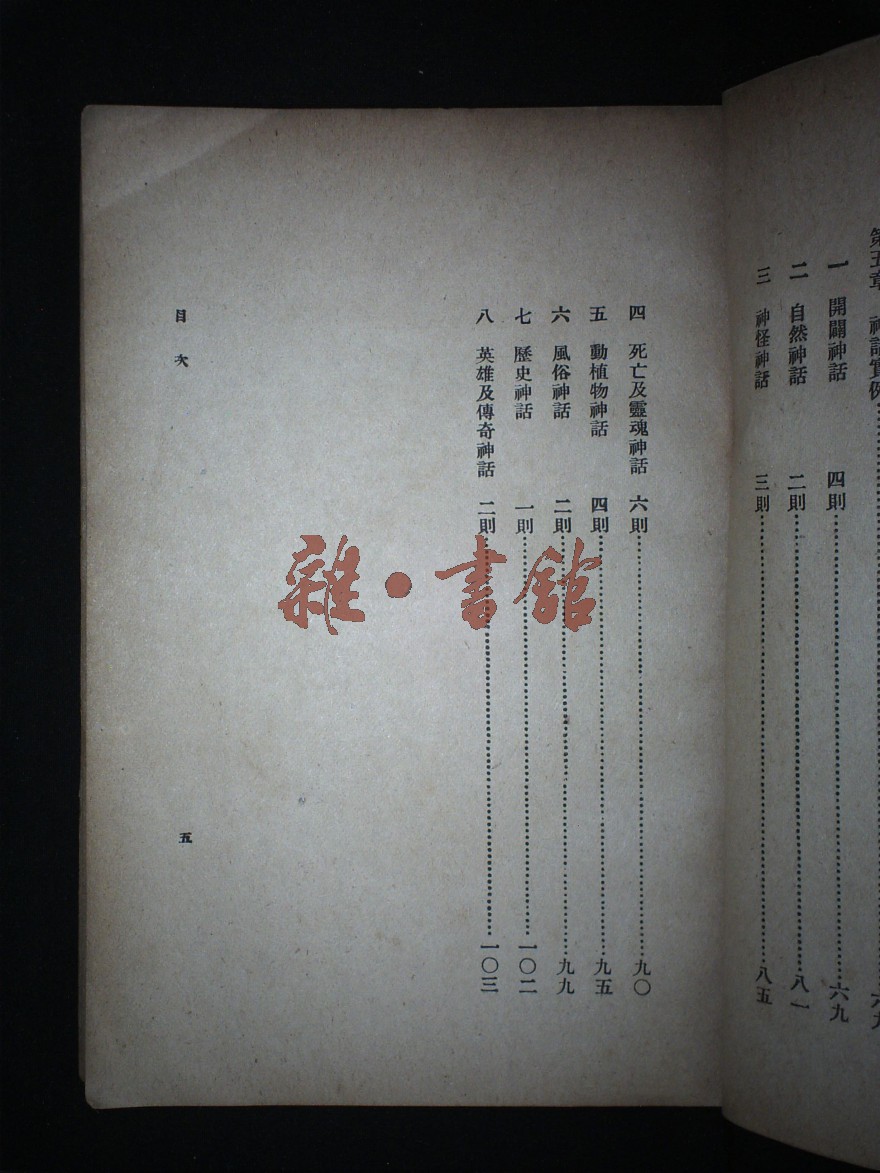 第五章 神話實例 六九
一 開闢神話 四則 六九
二 自然神話 二則 八一
三 神怪神話 三則 八五
四 死亡及靈魂神話 六則 九〇
五 動植物神話 四則 九五
六 風俗神話 二則 九九
七 歷史神話 一則 一〇二
八 英雄及傳奇神話 二則 一〇三
目次
五
雜·書館